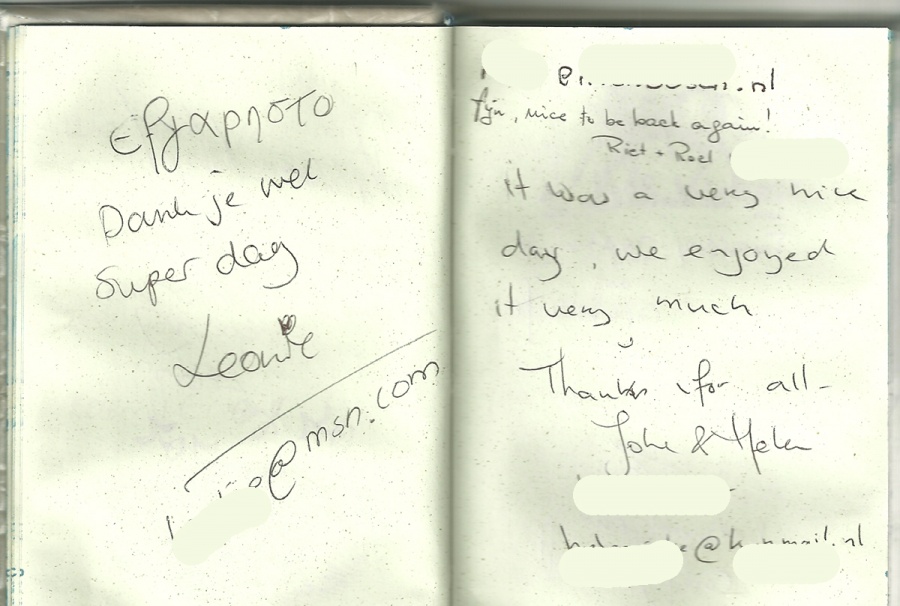 εργαρηστο
Dank je wel
Super dag
Leonie
@msn.com
.nl
fijn, nice to be back again!
Riet + Roel
it was a very nice
day, we enjoyed
it very much
Thanks for all-
John & Helen